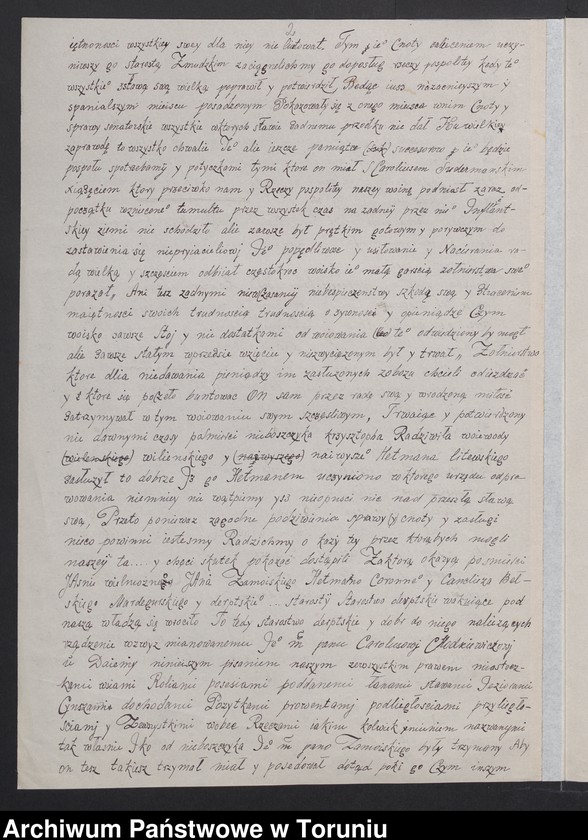 2
iętnonosci wszystkiey swey dla niey nie litował. Tym ſie Cnoty zaleceniem uczy-
niwszy go starostą Zmudzkim zaciągneliśmy go do posług rzeczy pospolitey kiedy te°
wszystkie° sstawą saą wielką poprawił y potwierdził, Będąc iusz nazacnieyszym y
spanialszym mieiscu posadzonym Pokazowały się z onego mieisca w nim Cnoty y
sprawy senatorskie wszystkie wktorych stawie zadnemu przodku nie dał Ha wielkiey
zaprawdę to wszystko chwalie Je° ale ieszcze pamiątce successorow ie° będzie
pospołu spotrzebamij y potyczkami tymi ktore on miał s Carolusem Sudermanskim
Xiążęciem ktory przeciwko nam y Rzeczy pospolitey naszey woinę podniosł zaraz od-
początku wznieconego tumultu przez wszystek czas na zadney przez nie° Inflant-
skiey ziemi nie schodziło ale zawsze był prętkim gotowym y porywczym do
zastawienia się nieprzyiacielowi Je° popędliwoe y usiłowanie y Nacierania ra-
dą wielką y szczęsciem odbiiał częstokroc woisko ie° małą garscią zołnierstwa swe°
porażał, Ani tesz zadnymi niebezpieczenstwy szkodą swą y Straceniem
maiętnosci swoich trudnoscią trudnoscią o zywnosć y opieniądze Czym
woisko zawsze stoj y nie dostatkami od woiowania te° odwiedziony by mogł
ale zawsze stałym wprzedsie wzięciu y niezwyciązonym był y trwał, Zołnierstwo
ktore dlia niedawania pieniędzy im zasłuzonych zobozu chcieli odiezdzać
y ktore się poczęło buntowac On sam przez radę swą y wrodzoną miłosć
zatrzymywał w tym woiowaniu swym szczęśliwym, Trwaiąc y potwierdzony
nie dawnymi czasy palmirei nieboszczyka krzysztopha Radziwyła woiewody
(wielenskiego) wilienskiego y (naywyszego) naiwysze° Hetmana litewskiego
zasłuzył to dobrze Jz go Hetmanem uczyniono wktorego urzędu odpra-
wowania niemniey nie wątpimy ysz nieopusci nic nad przeszłą sławą
swą, Przeto poniewaz zagodne podziwienia sprawy y cnoty y zasługi
nieco powinni iestesmy Radzichmy o każy ty przez ktorąbych mogli
naszey ta.... y chęci skutek pokazać dostąpili Zaktorą okazyą po smierci
JAśnie wielmoznego JAna Zamoiskiego Hetmana Coronne° y Canclerza Bel-
skiego Mardegurskiego y derptskie° ... starosty Starostwo derptskie wakuiące pod
naszą władzą się wrociło To tedy starostwo derptskie y dobr do niego nalezących
rządzenie wzwyz mianowanemu Je° m̃ panu Carolusowi Chodziewiczowj
iz Daiemy ninieiszym pisaniem naszym zewszystkim prawem miastecz-
kami wsiami Roliami posesiami poddanemi łanami stawami Jeziorami
Cynszamia dochodami Pozytkami prowentamy podległosciami przyległo-
ściamj y Zewszystkimi wobec Rzeczami iakim kolwiek ymieniem nazwanymi
tak właśnie Jko od nieboszczyka Je° m̃ pana Zamoiskiego były trzymany Aby
on tesz takiesz trzymał miał y posedował dotąd poki go Czym inszym
Archiwum Państwowe w Toruniu